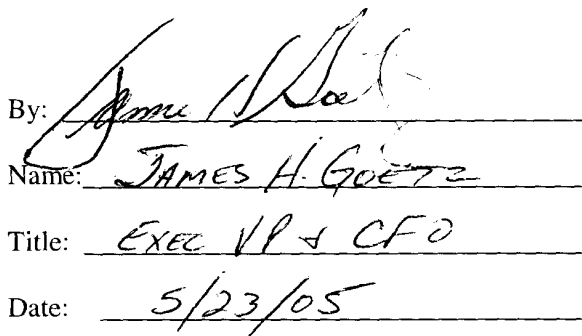 By: James H Goetz
Name: JAMES H. GOETZ
Title: EXEC VP & CFO
Date: 5/23/05